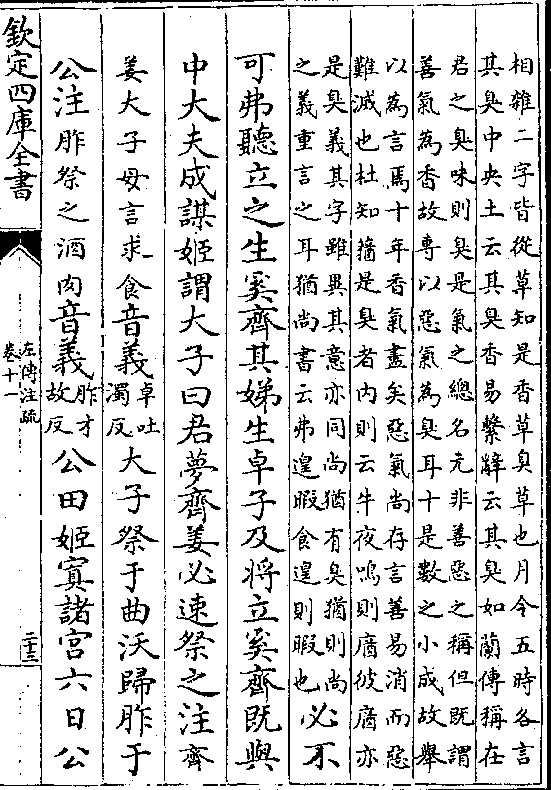 相雜二字皆從草知是香草臭草也月令五時各言
其臭中央土云其臭香易繫辭云其臭如蘭傳稱在
君之臭味則臭是氣之總名元非善惡之稱但既謂
善氣為香故專以惡氣為臭耳十是數之小成故舉
以為言焉十年香氣盡矣惡氣尚存言善易消而惡
難滅也杜知蕕是臭者内則云牛夜鳴則庮彼庮亦
是臭義其字雖異其意亦同尚猶有臭猶則尚
之義重言之耳猶尚書云弗遑暇食遑則暇也必不
可弗聽立之生奚齊其娣生卓子及將立奚齊既與
中大夫成謀姬謂大子曰君夢齊姜必速祭之注齊
姜大子母言求食音義卓吐濁反大子祭于曲沃歸胙于
公注胙祭之酒肉音義胙才故反公田姬寘諸宫六日公
欽定四庫全書
左傳注疏
卷十一
二十三